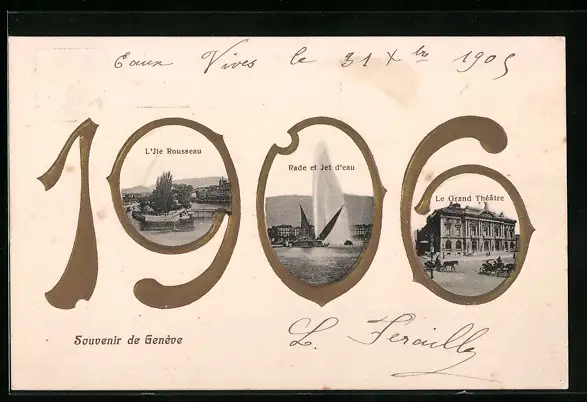 Eaux Vives le 31 Xbre 1905
1906
L'Jle Rousseau
Rade et Jet d'eau
Le Grand Théâtre
Souvenir de Genève
L.